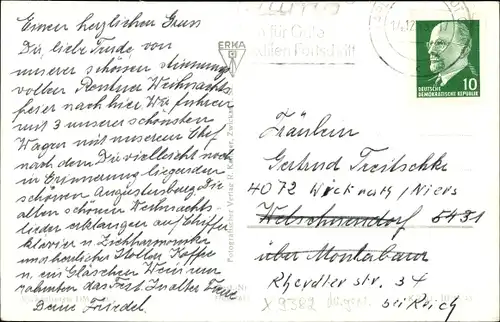 Einen herzlichen Gruss
Dir, liebe Trude von
unserer schönen stimmungs
vollen Rentner Weihnachts
feier nach hier. Wir fuhren
mit 3 unserer schönsten
Wagen mit unserem Chef
nach dem Dir vielleicht noch
in Erinnerung liegenden
schönen Augustusburg. Die
alten schönen Weihnachts
lieder erklangen auf Schiffer
klavier u. Ziehharmonika
und herrlicher Stollen, Kaffee
u. ein Gläschen Wein um
rahmten das Fest. In alter Treue
Deine Friedel.
ERKA
Fotografischer Verlag R. Zwickau
für Güte
Fortschritt
14.12
DEUTSCHE
DEMOKRATISCHE REPUBLIK
10
Fräulein
Gertrud Treitschke
4072 Wickrath/Niers
Welschneudorf 5431
über Montabaur
Rheydter str. 34
bei Reich
X 9382